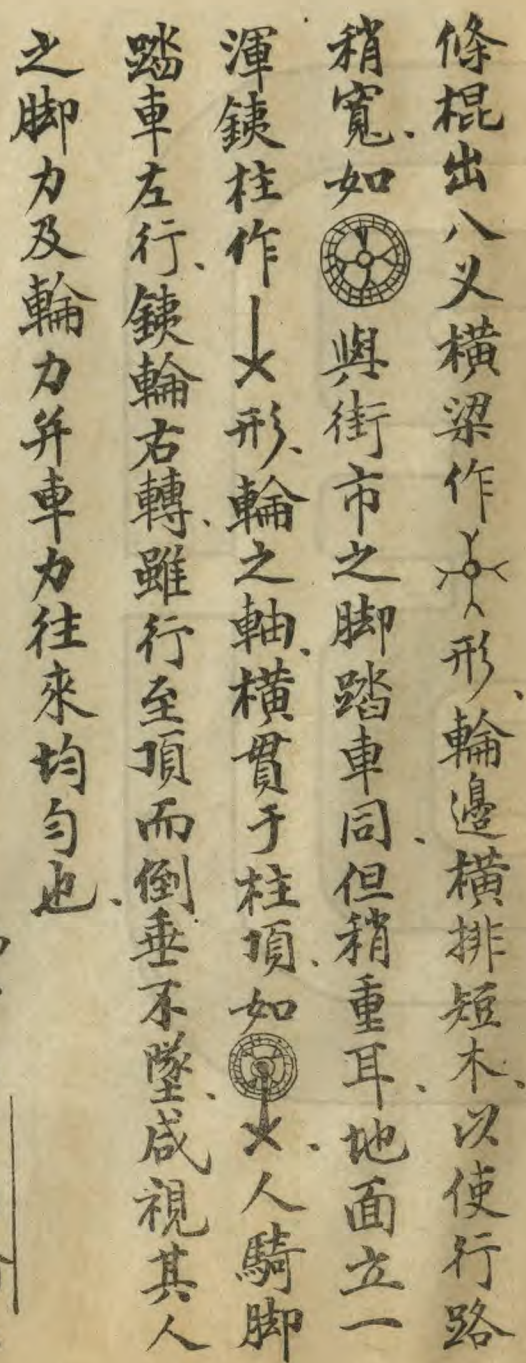 條棍出八义橫梁作形、輪邊橫排短木、以使行路
稍寬、如與街市之脚踏車同、但稍重耳、地面立一
渾銕柱作形、輪之軸、橫貫于柱頂、如、人騎脚
踏車左行、銕輪右轉、雖行至頂而倒垂不墜、咸視其人
之脚力及輪力并車力往來均勻也、